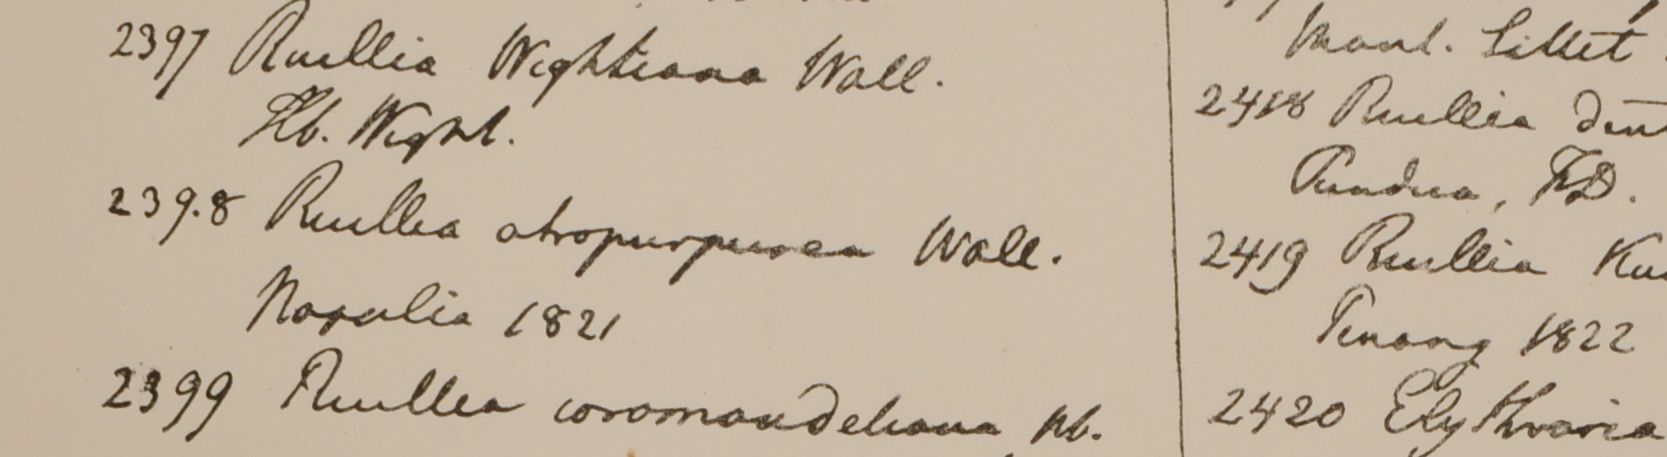 2397 Ruellia Wightiana Wall.
Hb. Wight.
2398 Ruellia atropurpurea Wall.
Napalia 1821
2399 Ruellia coromandeliana hb.
Mont. Sillet.
2418 Ruellia
Pundua, F.D.
2419 Ruellia
Penang 1822
2420 Elythraria